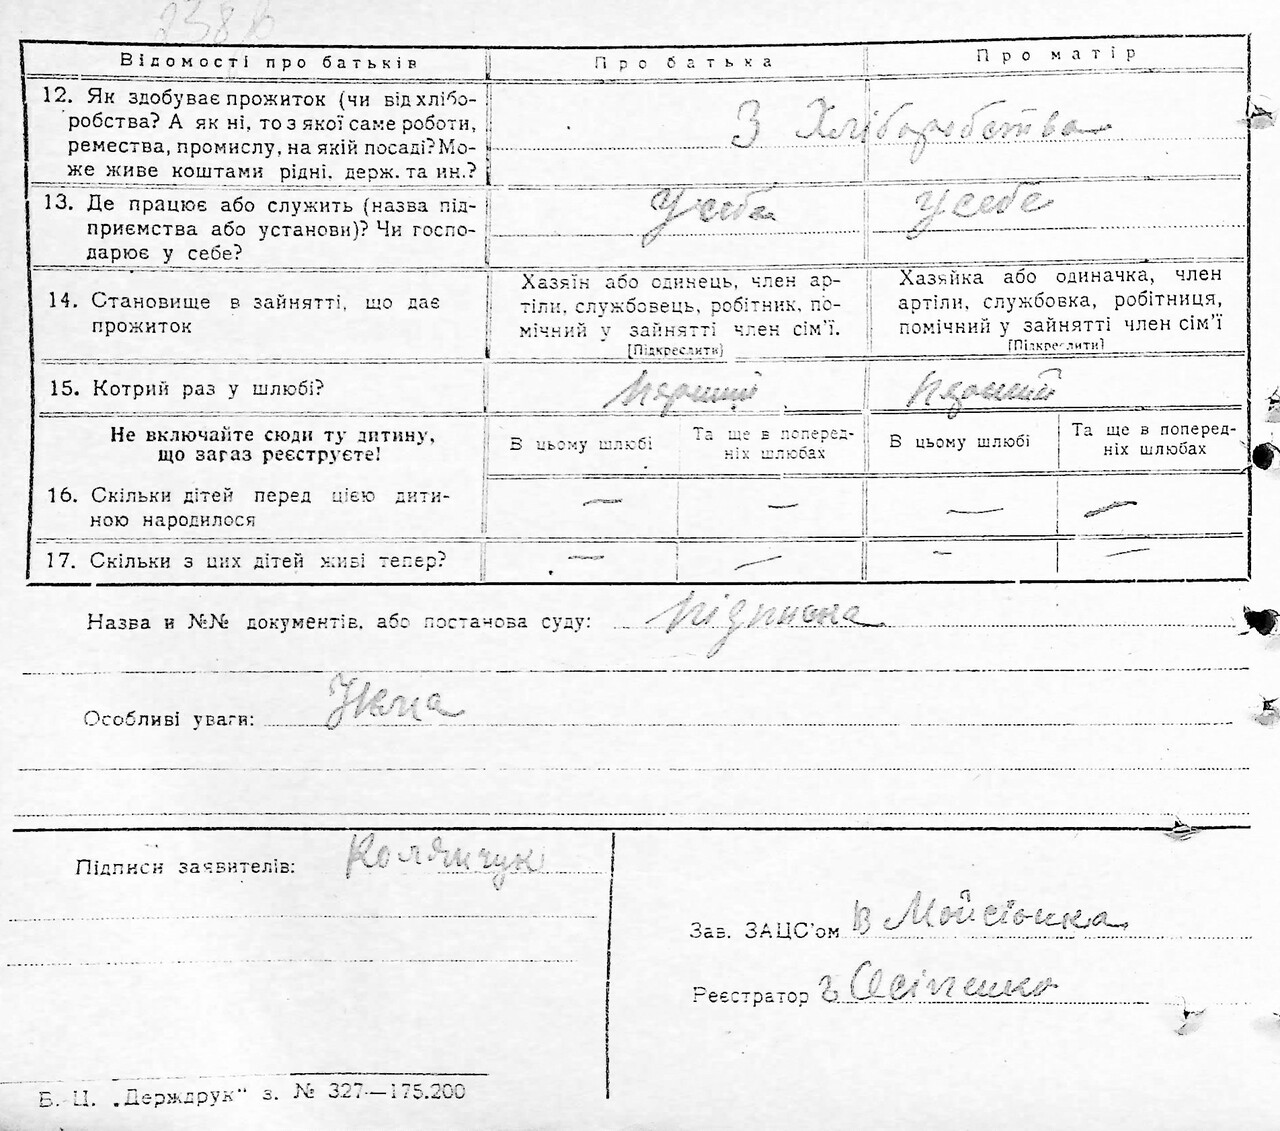 238
Відомості про батьків Про батька Про матір
12. Як здобуває прожиток (чи від хлібо-
робства? А як ні, то з якої саме роботи,
ремества, промислу, на якій посаді? Мо-
же живе коштами рідні, держ. та ин.?
З Хліборобства
13. Де працює або служить (назва під-
приємства або установи)? Чи госпо-
дарює у себе?
У себе У себе
14. Становище в зайнятті, що дає
прожиток
Хазяїн або одинець, член ар-
тіли, службовець, робітник, по-
мічний у зайнятті член сім'ї.
[Підкреслити)
Хазяйка або одиначка, член
артіли, службовка, робітниця,
помічний у зайнятті член сім'ї
[Підкреслити]
15. Котрий раз у шлюбі? Перший Перший
Не включайте сюди ту дитину,
що загаз реєструєте!
В цьому шлюбі
Та ще в поперед-
ніх шлюбах
В цьому шлюбі
Та ще в поперед-
ніх шлюбах
16. Скільки дітей перед цією дити-
ною народилося
— — — —
17. Скільки з цих дітей живі тепер? — — — —
Назва и №№ документів, або постанова суду:
Особливі уваги:
Підписи заявителів:
Зав. ЗАЦС'ом
Реєстратор Осіпенко
Б. Ц. „Держдрук" з. № 327—175.200